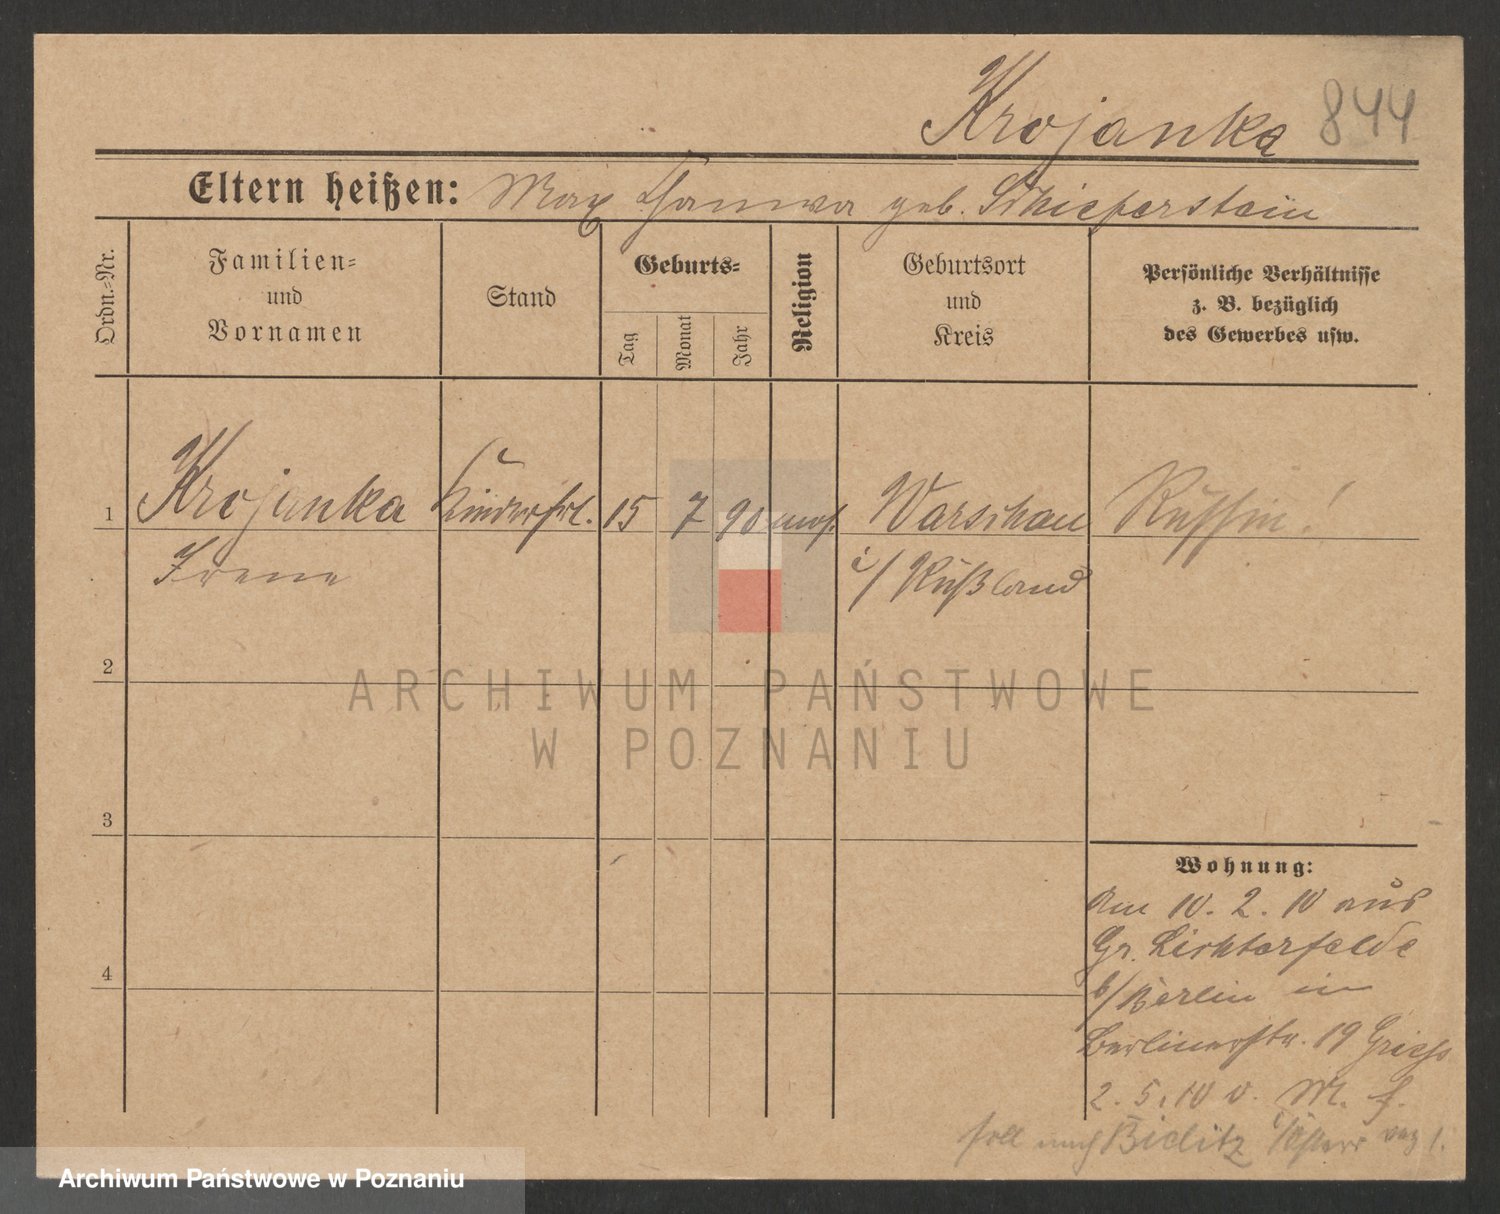 Krojanka 844
Eltern heißen: Max Hanna geb. Schieferstein
Ordn.-Nr.
Familien-
und
Vornamen
Stand
Geburts-
Tag
Monat
Jahr
Religion
Geburtsort
und
Kreis
Persönliche Verhältnisse
z. B. bezüglich
des Gewerbes usw.
1 Krojanka Kinderfrl. 15 7 90 mos. Warschau Russin!
Irene i/ Rußland
2
ARCHIWUM PAŃSTWOWE
W POZNANIU
3
Wohnung:
Am 10. 2. 10 aus
Gr. Lichterfelde
4
b/Berlin in
Berlinerstr. 19
2. 5. 10 v. M.
soll nach Bielitz verz.
Archiwum Państwowe w Poznaniu